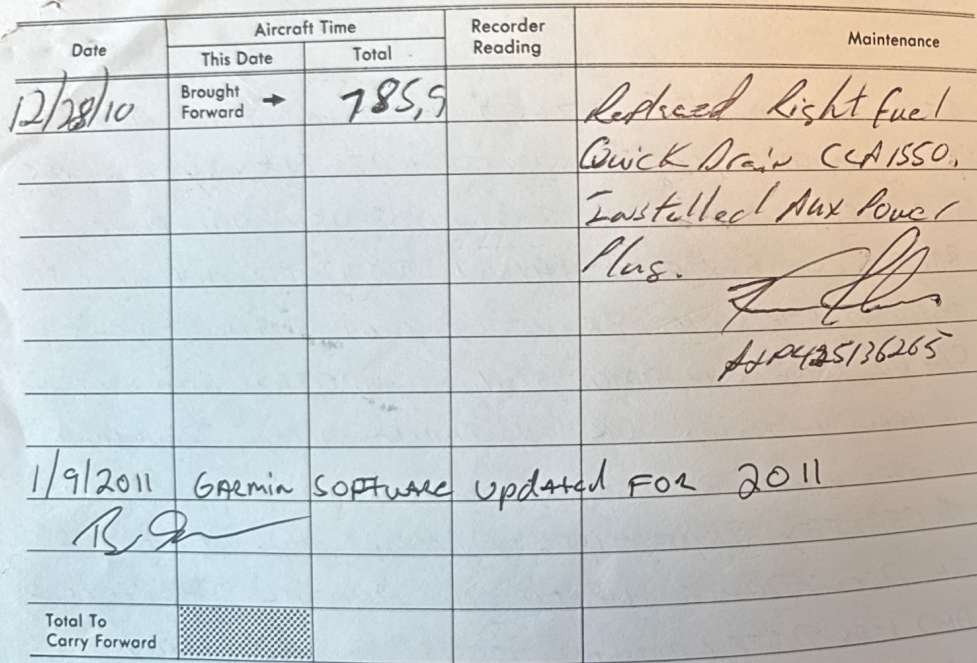 Date
Aircraft Time
This Date
Total
Recorder
Reading
Maintenance
12/28/10
Brought
Forward
785,9
Replaced Right Fuel
Quick Drain CCA1550.
Installed Aux Power
Plug.
1/9/2011 Garmin Software Updated FOR 2011
Total To
Carry Forward